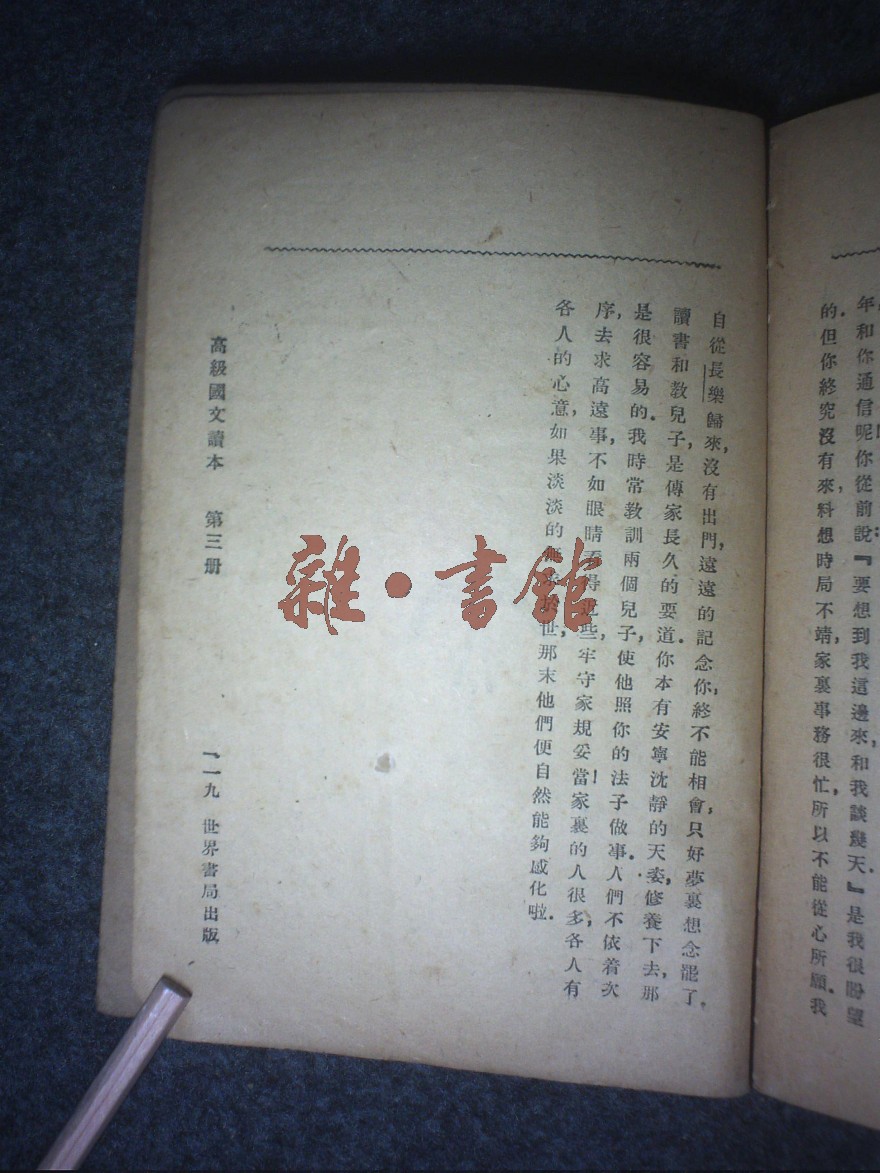 年和你通信呢!你從前說:『要想到我這邊來,和我談幾天.』是我很盼望
的.但你終究沒有來,料想時局不靖,家裏事務很忙,所以不能從心所願.我
自從長樂歸來,沒有出門,遠遠的記念你,終不能相會,只好夢裏想念罷了.
讀書和敎兒子,是傳家長久的要道.你本有安寧沈靜的天姿,修養下去,那
是很容易的.我時常敎訓兩個兒子,使他照你的法子做事.人們不依着次
序,去求高遠事,不如眼睛看得近些,牢守家規妥當!家裏的人很多,各人有
各人的心意,如果淡淡的世,那末他們便自然能夠感化啦.
高級國文讀本 第三册
一一九 世界書局出版
雜·書館